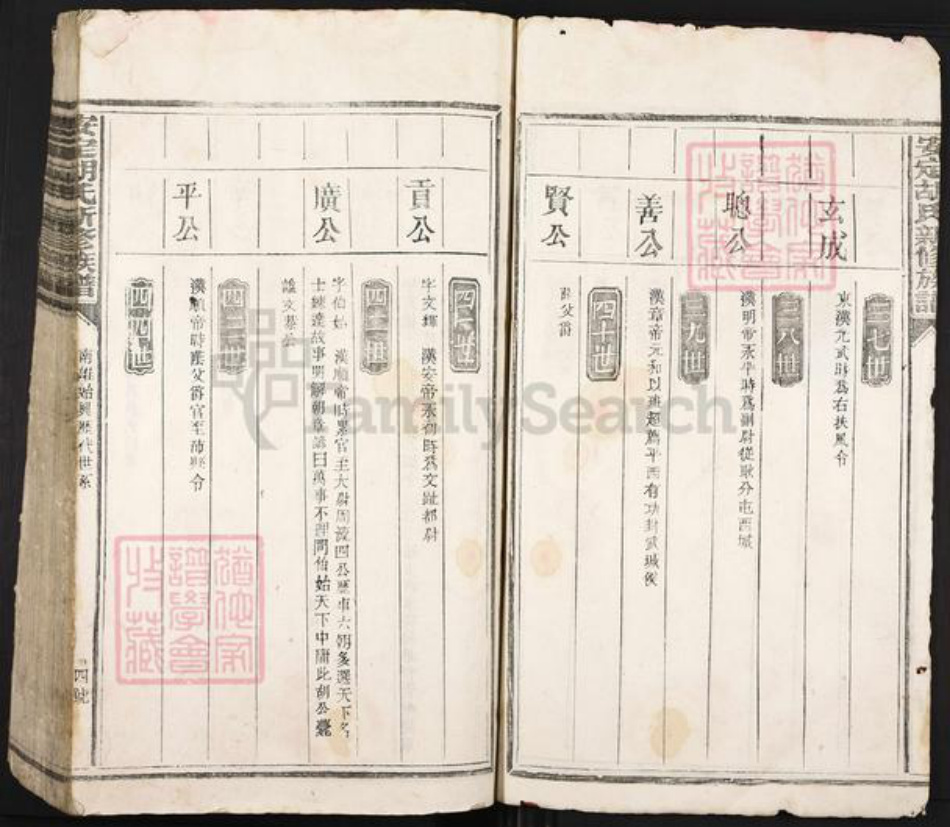 安定胡氏新修族譜
三七世
玄成
東漢光武時爲右扶風令
三八世
聰公
漢明帝永平時爲副尉從耿分屯西域
三九世
善公
漢章帝元和以班超薦平西有功封武城侯
四十世
賢公
四一世
貢公
字文輝 漢安帝永初時爲交趾都尉
四二世
廣公
字伯始 漢順帝時累官至大尉周流四公歷事六朝多選天下名
士練達故事明解朝章諺曰萬事不理問伯始天下中庸此胡公薨
謚文恭公
四三世
平公
漢順帝時蔭父爵官至沛縣令
四四世
安定胡氏新修族譜
南雄始興歷代世系
四號
FamilySearch